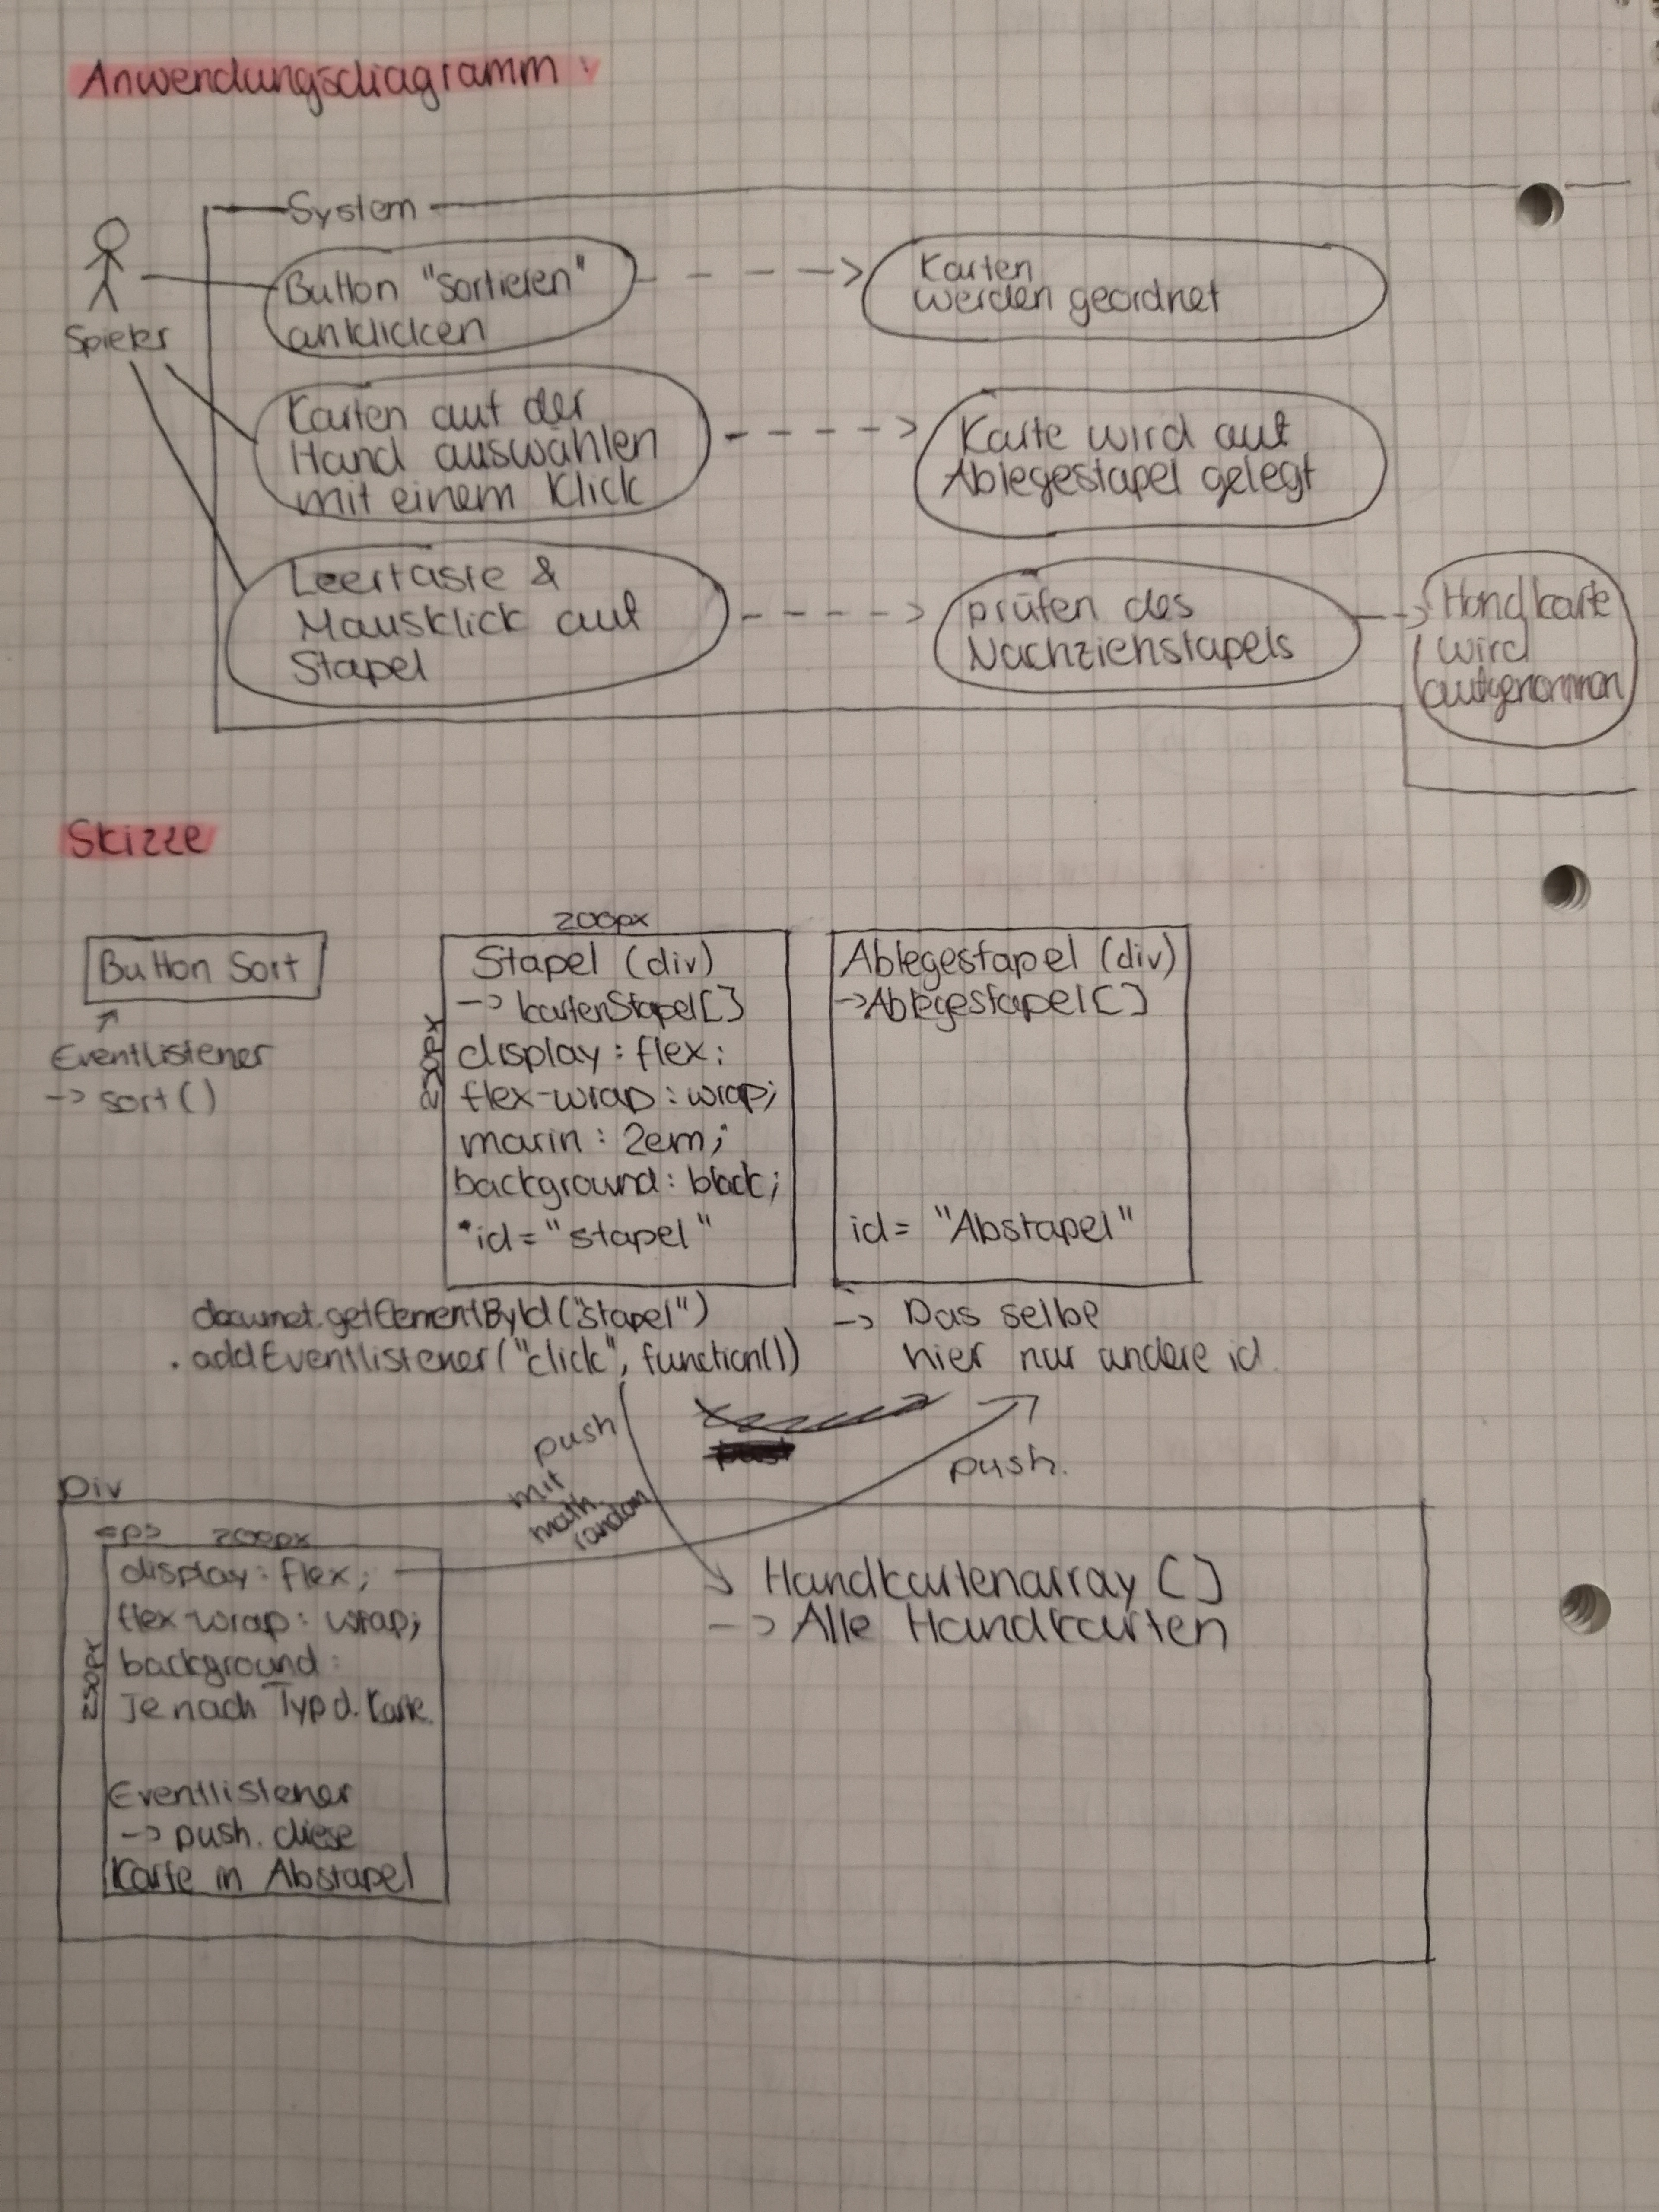 Anwendungsdiagramm:
System
Spieler
Button "sortieren"
anklicken
Karten
werden geordnet
Karten auf der
Hand auswählen
mit einem Klick
Karte wird auf
Ablegestapel gelegt
Leertaste &
Mausklick auf
Stapel
prüfen des
Nachziehstapels
Handkarte
wird
aufgenommen
Skizze
Button Sort
Eventlistener
-> sort()
200px
250px
Stapel (div)
-> kartenStapel[]
display: flex;
flex-wrap: wrap;
marin: 2em;
background: black;
*id="stapel"
Ablegestapel (div)
->Ablegestapel[]
id= "Abstapel"
documet.getElementById("stapel")
.addEventlistener("click", function())
-> Das selbe
hier nur andere id.
push
mit
math
random
push.
Div
<p> 200px
250px
display: flex;
flex-wrap: wrap;
background:
Je nach Typ d. Karte.
Eventlistener
-> push. diese
Karte in Abstapel
Handkartenarray []
-> Alle Handkarten